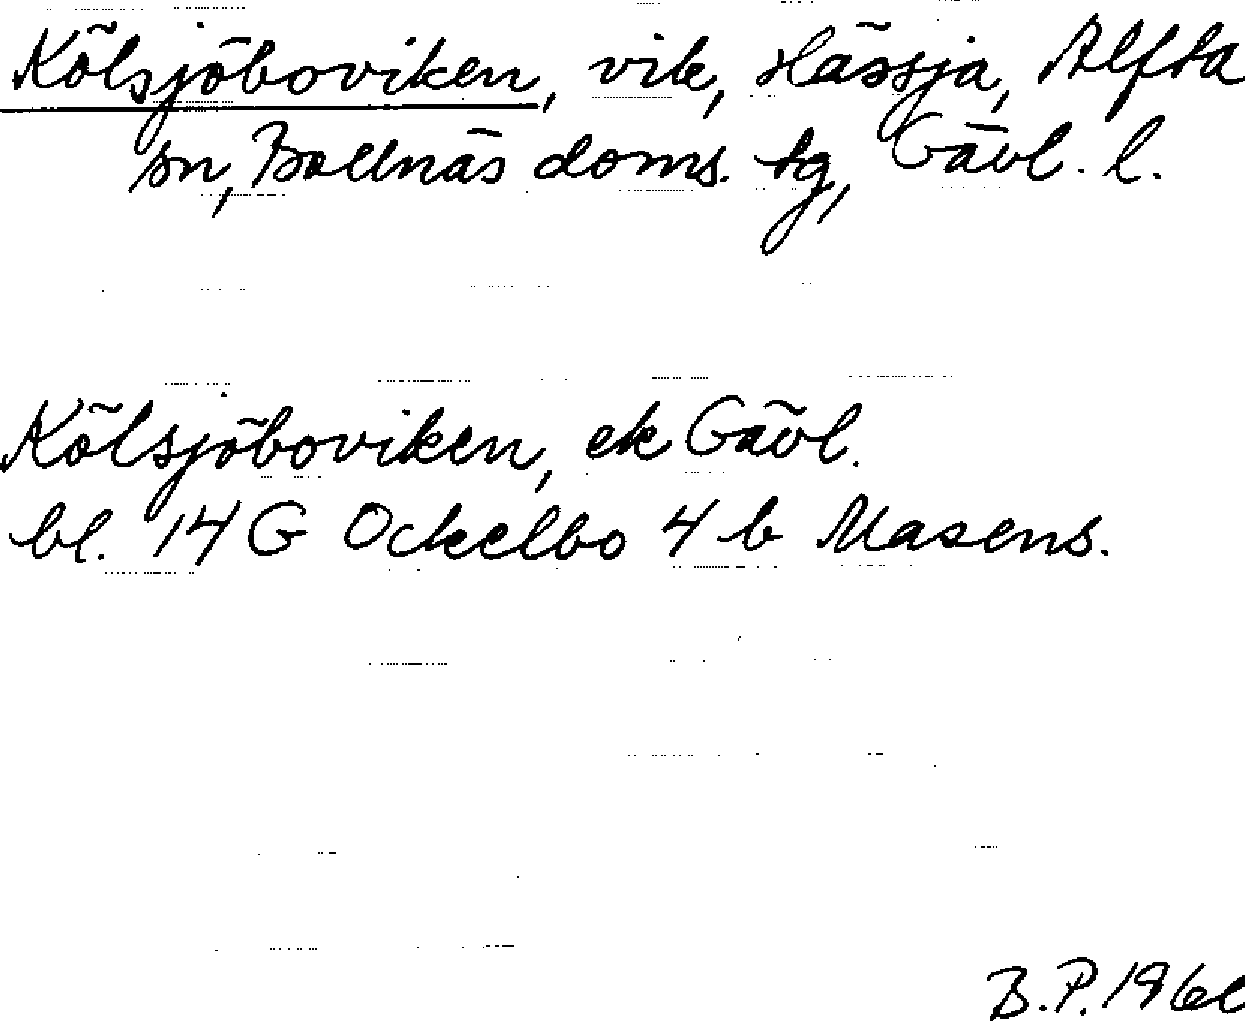 Kölsjöboviken, vik, Hässja, Alfta
sn, Bollnäs doms. tg, Gävl. l.
Kölsjöboviken, ek Gävl.
bl. 14 G Ockelbo 4 b Masens.
B.P.